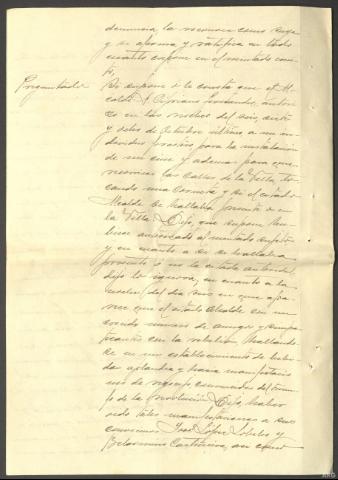 denuncia, la reconoce como suya
y se afirma y ratifica en todo
cuanto expone en el mentado escri-
to,
Preguntado
Si supone o le consta que el Al-
calde D. Cipriano autori-
zó en las noches del seis, siete
y ocho de Octubre último a un in-
dividuo forastero para la instalación
de un cine y ademas para que
recorriese las calles de la Villa, to-
cando una corneta y si el citado
Alcalde se hallaba presente o en
la Villa. Dijo, que supone hu-
biese autorizado al mentado sujeto
y en cuanto a si se hallaba
presente o no la citada autoridad
dijo lo ignora, en cuanto a la
noche del dia seis en que apa-
rece que el citado Alcalde con un
crecido número de amigos y simpa-
tizantes con la rebelión hallando-
se en un establecimiento de bebi-
das aplaudia y hacia manifestacio-
nes de regocijo del triun-
fo de la revolución, Dijo, haber
oido tales manifestaciones a sus
convecinos José López Lobeles y
Belarmino, asi como